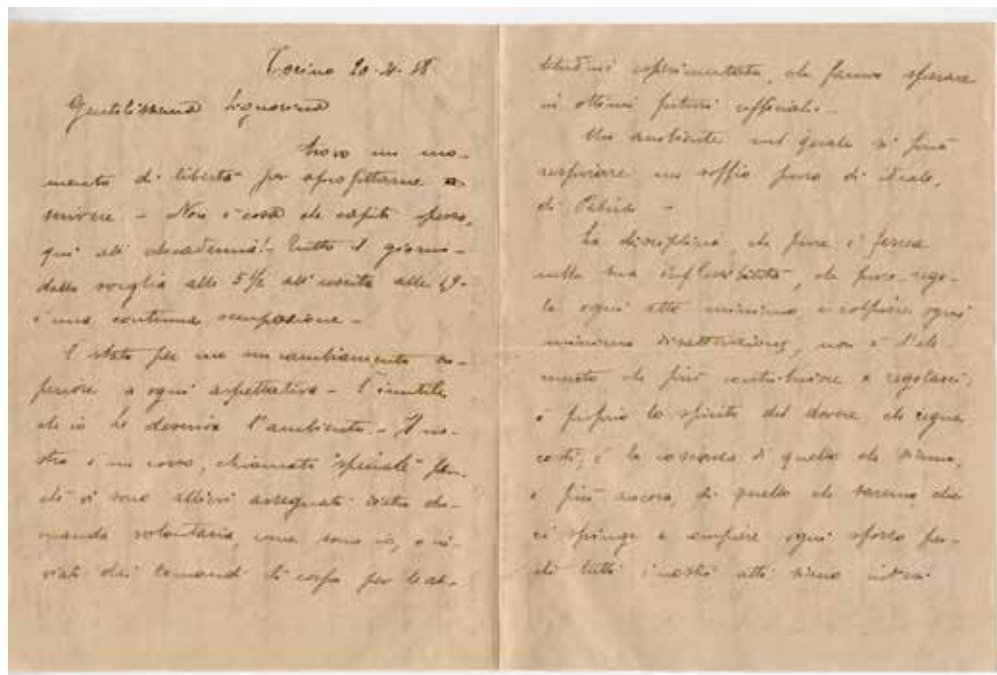 Torino 20-4-18.
Gentilissima Signorina
trovo un mo-
mento di libertà per approfittarne a
scrivere. - Non è cosa che capiti spesso,
qui all' Accademia! - Tutto il giorno -
dalla sveglia alle 5½ all' uscita alle 19 -
è una continua occupazione -
È stato per me un cambiamento su-
periore a ogni aspettativa - È inutile
che io Le descriva l'ambiente. - Il no-
stro è un corso, chiamato "speciale" per-
chè vi sono allievi assegnati dietro do-
manda volontaria, come sono io, o in-
viati dai Comandi di corpo per le at-
titudini esperimentate, che fanno sperare
in ottimi futuri ufficiali -
Un ambiente nel quale si può
respirare un soffio puro di ideale,
di Patria -
La disciplina, che pure è ferrea
nella sua inflessibilità, che pure rego-
la ogni atto minimo, e colpisce ogni
minima disattenzione, non è l'ele-
mento che più contribuisce a regolarci:
è proprio lo spirito del dovere che regna
costì, è la coscienza di quello che siamo,
e più ancora, di quello che saremo, che
ci spinge a compiere ogni sforzo per-
chè tutti i nostri atti siano intesi